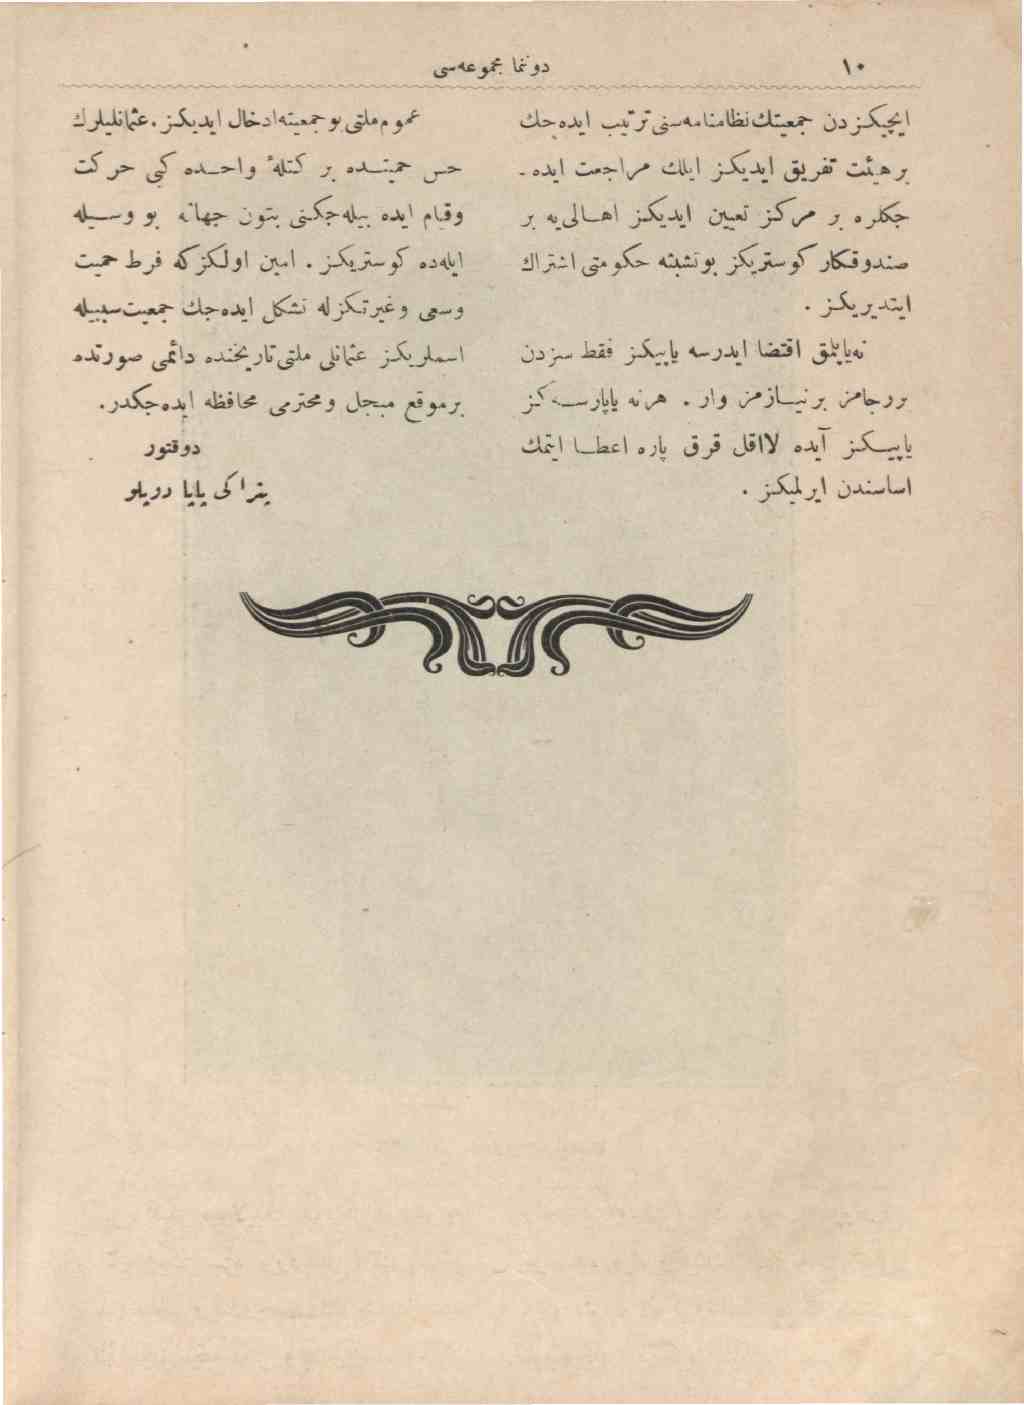 ١٠
دوننما مجموعه‌سی
ایچیکزدن جمعیتك نظامنامه‌سنی ترتیب ایده‌جك
برهیئت تفریق ایدیکز ایلك مراجعت ایده‌ـ
جکلره بر مرکز تعیین ایدیکز اهالی‌یه بر
صندوقکار کوستریکز بوتشبثه حکومتی اشتراك
ایتدیریکز .
نه‌یاپلمق اقتضا ایدرسه یاپیکز فقط سزدن
بررجامز برنیازمز وار . هرنه یاپارسه‌کز
یاپیکز آیده لااقل قرق پاره اعطا ایتمك
اساسندن ایرلمیکز .
عموم ملتی بوجمعیته ادخال ایدیکز . عثمانلیلرك
حس حمیتده بر کتلهٔ واحده کبی حرکت
وقیام ایده بیله‌جکنی بتون جهانه بو وسیله
ایله‌ده کوستریکز . امین اولکزکه فرط حمیت
وسعی وغیرتکزله تشکل ایده‌جك جمعیت سببیله
اسملریکز عثمانلی ملتی تاریخنده دائمی صورتده
برموقع مبجل ومحترمی محافظه ایده‌جکدر.
دوقتور
پتراکی پاپا